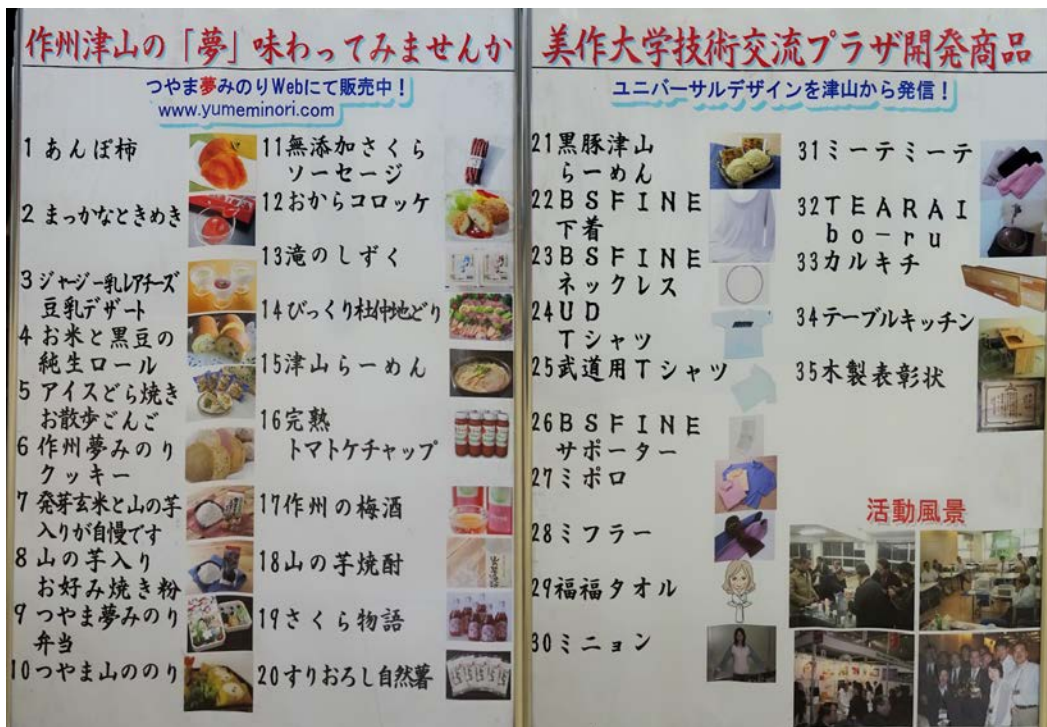 作州津山の「夢」味わってみませんか
つやま夢みのりWebにて販売中！
www.yumeminori.com
1 あんぽ柿
2 まっかなときめき
3 ジャージー乳レアチーズ
豆乳デザート
4 お米と黒豆の
純生ロール
5 アイスどら焼き
お散歩ごんご
6 作州夢みのり
クッキー
7 発芽玄米と山の芋
入りが自慢です
8 山の芋入り
お好み焼き粉
9 つやま夢みのり
弁当
10 つやま山ののり
11 無添加さくら
ソーセージ
12 おからコロッケ
13 滝のしずく
14 びっくり杜仲地どり
15 津山らーめん
16 完熟
トマトケチャップ
17 作州の梅酒
18 山の芋焼酎
19 さくら物語
20 すりおろし自然薯
美作大学技術交流プラザ開発商品
ユニバーサルデザインを津山から発信！
21 黒豚津山
らーめん
22 BSFINE
下着
23 BSFINE
ネックレス
24 UD
Tシャツ
25 武道用Tシャツ
26 BSFINE
サポーター
27 ミポロ
28 ミフラー
29 福福タオル
30 ミニョン
31 ミーテミーテ
32 TEARAI
bo-ru
33 カルキチ
34 テーブルキッチン
35 木製表彰状
活動風景